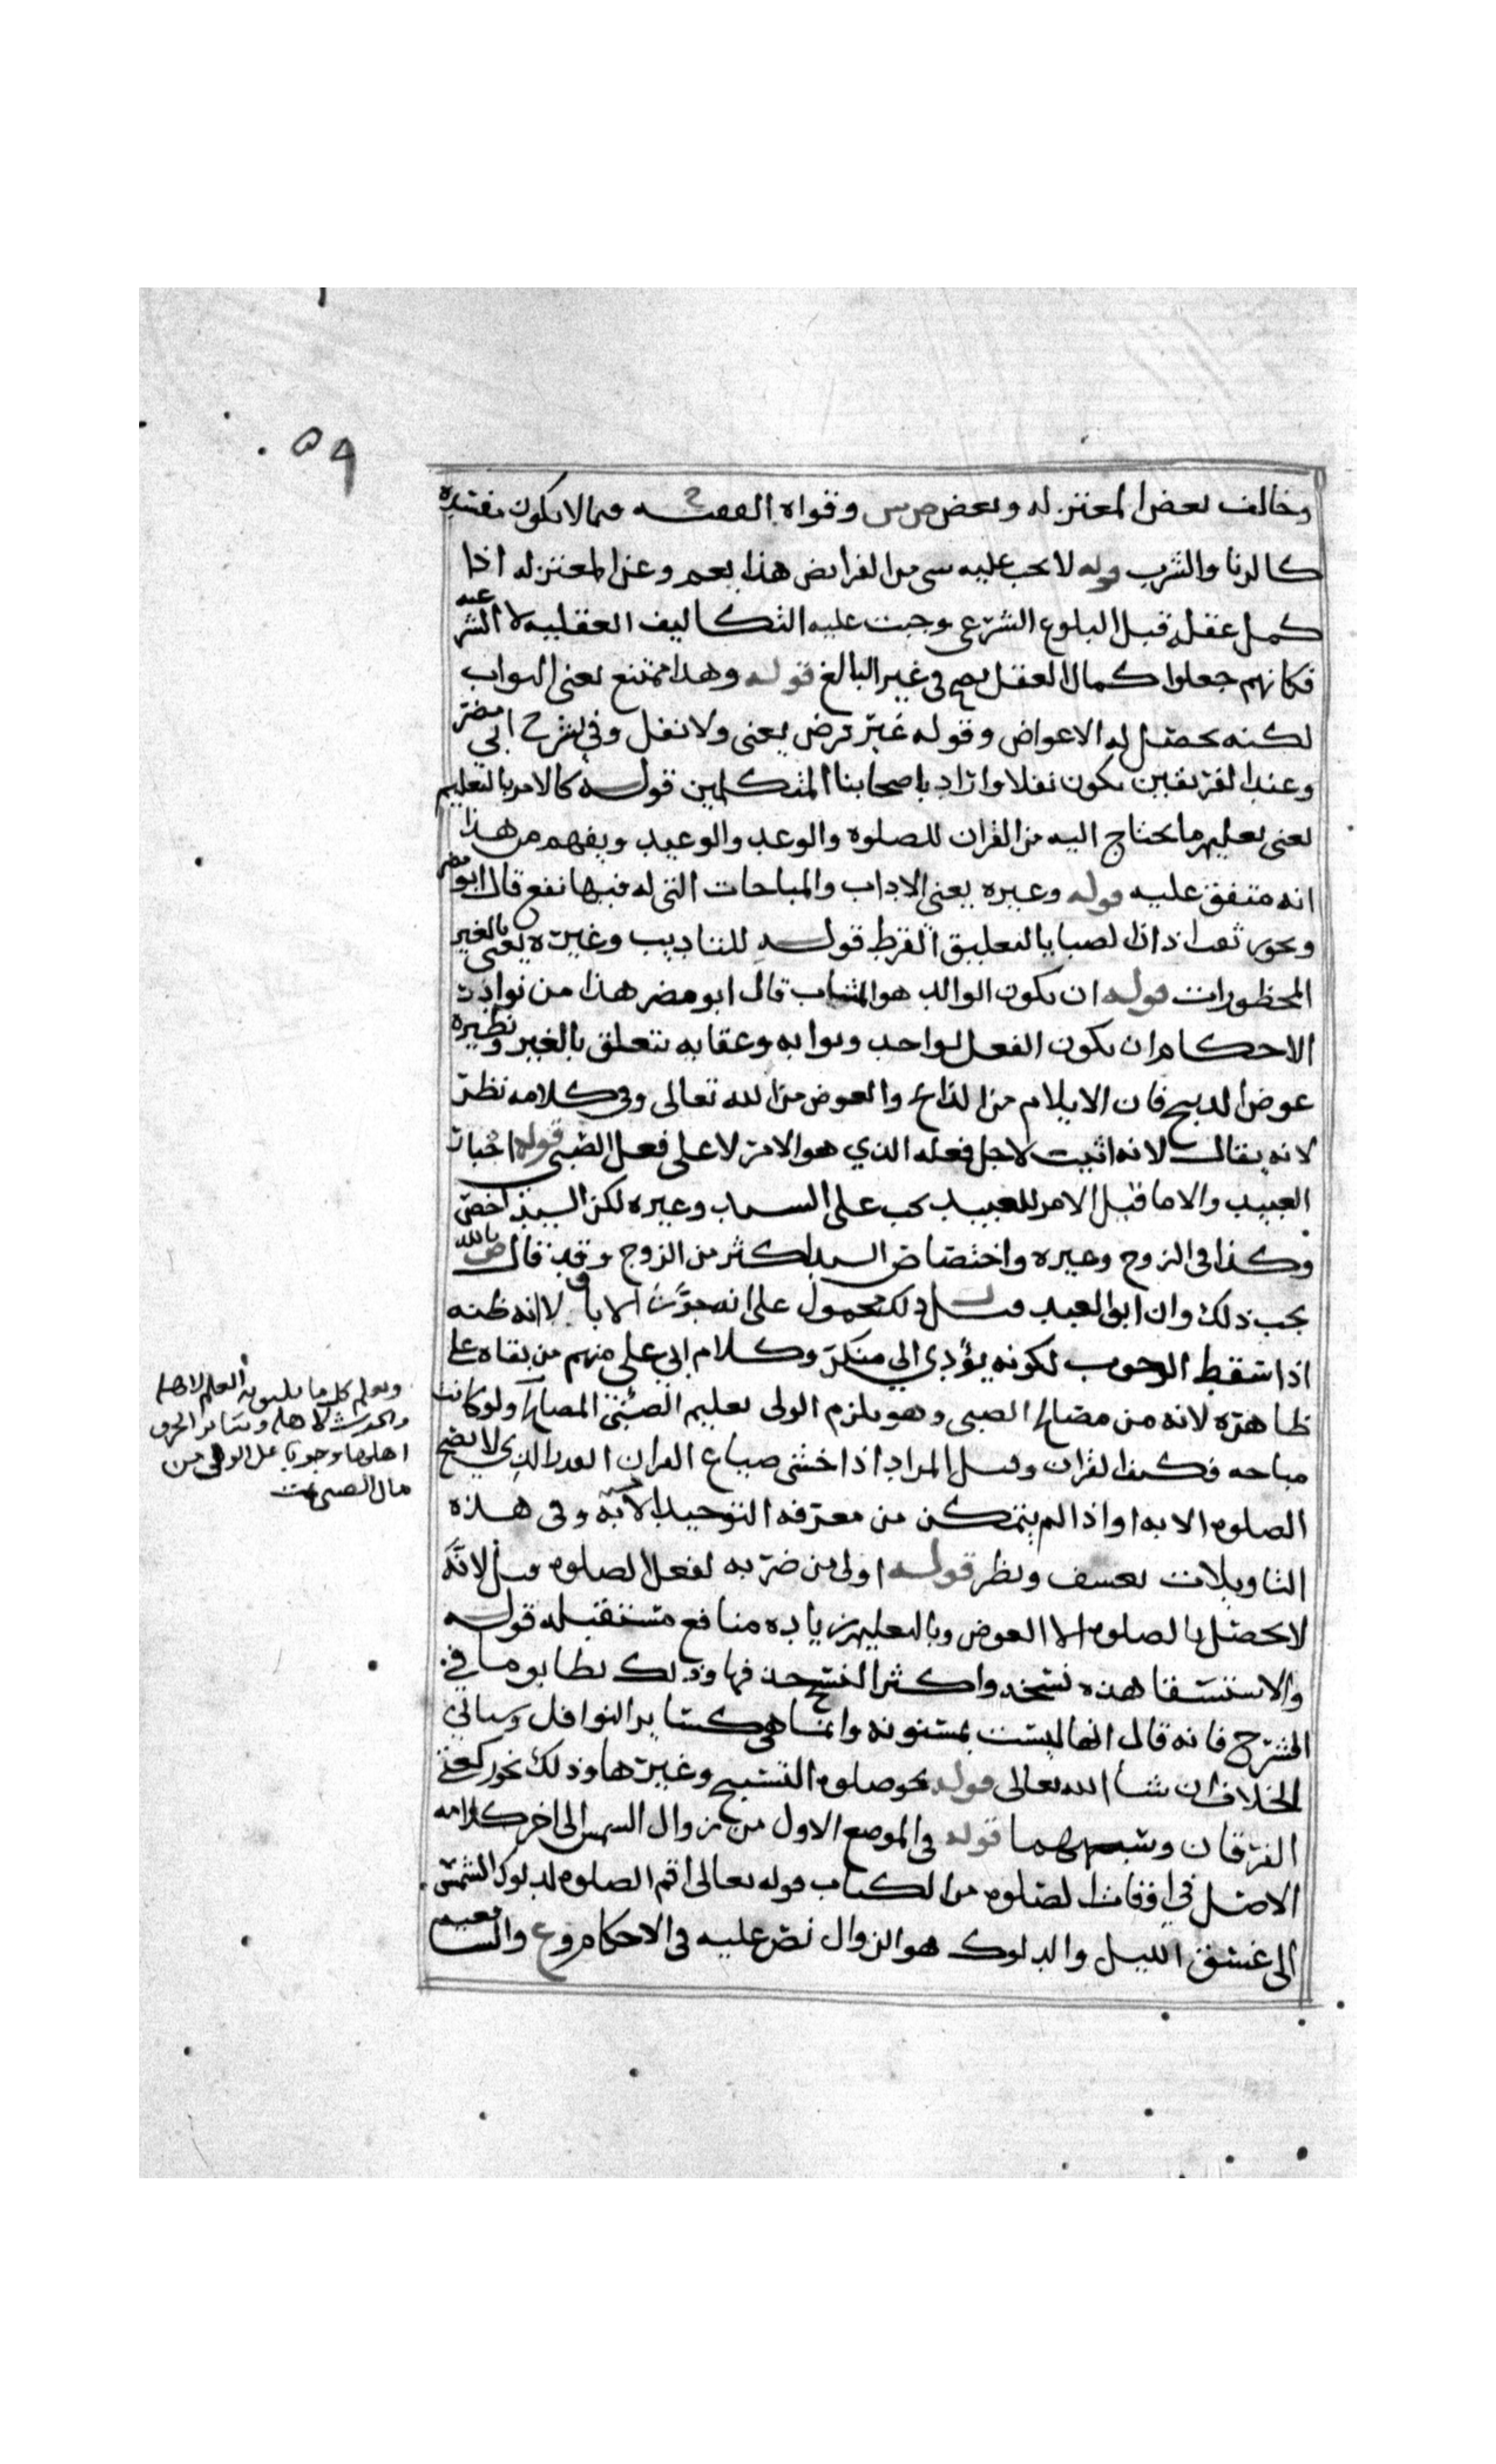 ٥٩
وخالف بعض المعتزله وبعض ص ش وقواه الفقيه فيما لا يكون مفسده
كالزنا والشرب قوله لا يجب عليه شي من الفرايض هذا يعم وعن المعتزله اذا
كمل عقله قبل البلوغ الشرعي وجبت عليه التكاليف العقليه لا الشرعيه
فكانهم جعلوا كمال العقل يصح في غير البالغ قوله وهذا ممتنع يعني الثواب
لكنه يحصل له الاعواض وقوله غير فرض يعني ولا نفل وفي شرح ابي مضر
وعند الفريقين يكون نفلا واراد باصحابنا المتكلمين قوله كالامر بالتعليم
يعني تعليم ما يحتاج اليه من القران للصلوه والوعد والوعيد ويفهم من هذا
انه متفق عليه قوله وغيره يعني الاداب والمباحات التي له فيها نفع قال ابو مضر
ويجوز ثقب اذان الصبايا لتعليق القرط قوله للتاديب وغيره يعني بالغير
المحظورات قوله ان يكون الوالد هو المثاب قال ابو مضر هذا من نوادر
الاحكام ان يكون الفعل لواحد وثوابه وعقابه يتعلق بالغير ونظيره
عوض الذبيح فان الايلام من الذابح والعوض من الله تعالى وفي كلامه نظر
لانه يقال لانه اثيب لاجل فعله الذي هو الامر لا على فعل الصبي قوله اجبار
العبيد والاما قيل الامر للعبيد يجب على السيد وغيره لكن السيد اخص
وكذا في الزوج وغيره واختصاص السيد اكثر من الزوج وقد قال ص بالله
يجب ذلك وان ابق العبد قيل ذلك محمول على انه جوز الاباق لا انه ظنه
اذا سقط الوجوب لكونه يؤدي الي منكر وكلام ابي علي منهم من بقاه على
ظاهره لانه من مصالح الصبي وهو يلزم الولي تعليم الصبي المصالح ولو كانت
مباحه فكيف القران وقيل المراد اذا خشي ضياع القران القدر الذي لا يصح
الصلوه الا به او اذا لم يتمكن من معرفه التوحيد الا به وفي هذه
التاويلات تعسف ونظر قوله اولى من ضربه لفعل الصلوه قيل لانه
لا يحصل بالصلوه الا العوض وبالتعليم زياده منافع مستقبله قوله
والاستسقا هذه نسخه واكثر النسخ حذفها وذلك يطابق ما في
الشرح فانه قال انها ليست بمسنونه وانما هي كساير النوافل وسياتي
الخلاف ان شا الله تعالى قوله نحو صلوه التسبيح وغيرها وذلك نحو ركعتي
الفرقان وشبههما قوله في الموضع الاول من زوال الشمس الى اخر كلامه
الاصل في اوقات الصلوه من الكتاب قوله تعالى اقم الصلوه لدلوك الشمس
الى غسق الليل والدلوك هو الزوال نص عليه في الاحكام وع
ويعلم كل ما يليق به العلم لاهله
والحرث لاهله وسائر الحرف
اهلها وجوبا على الولي من
مال الصبي تمت